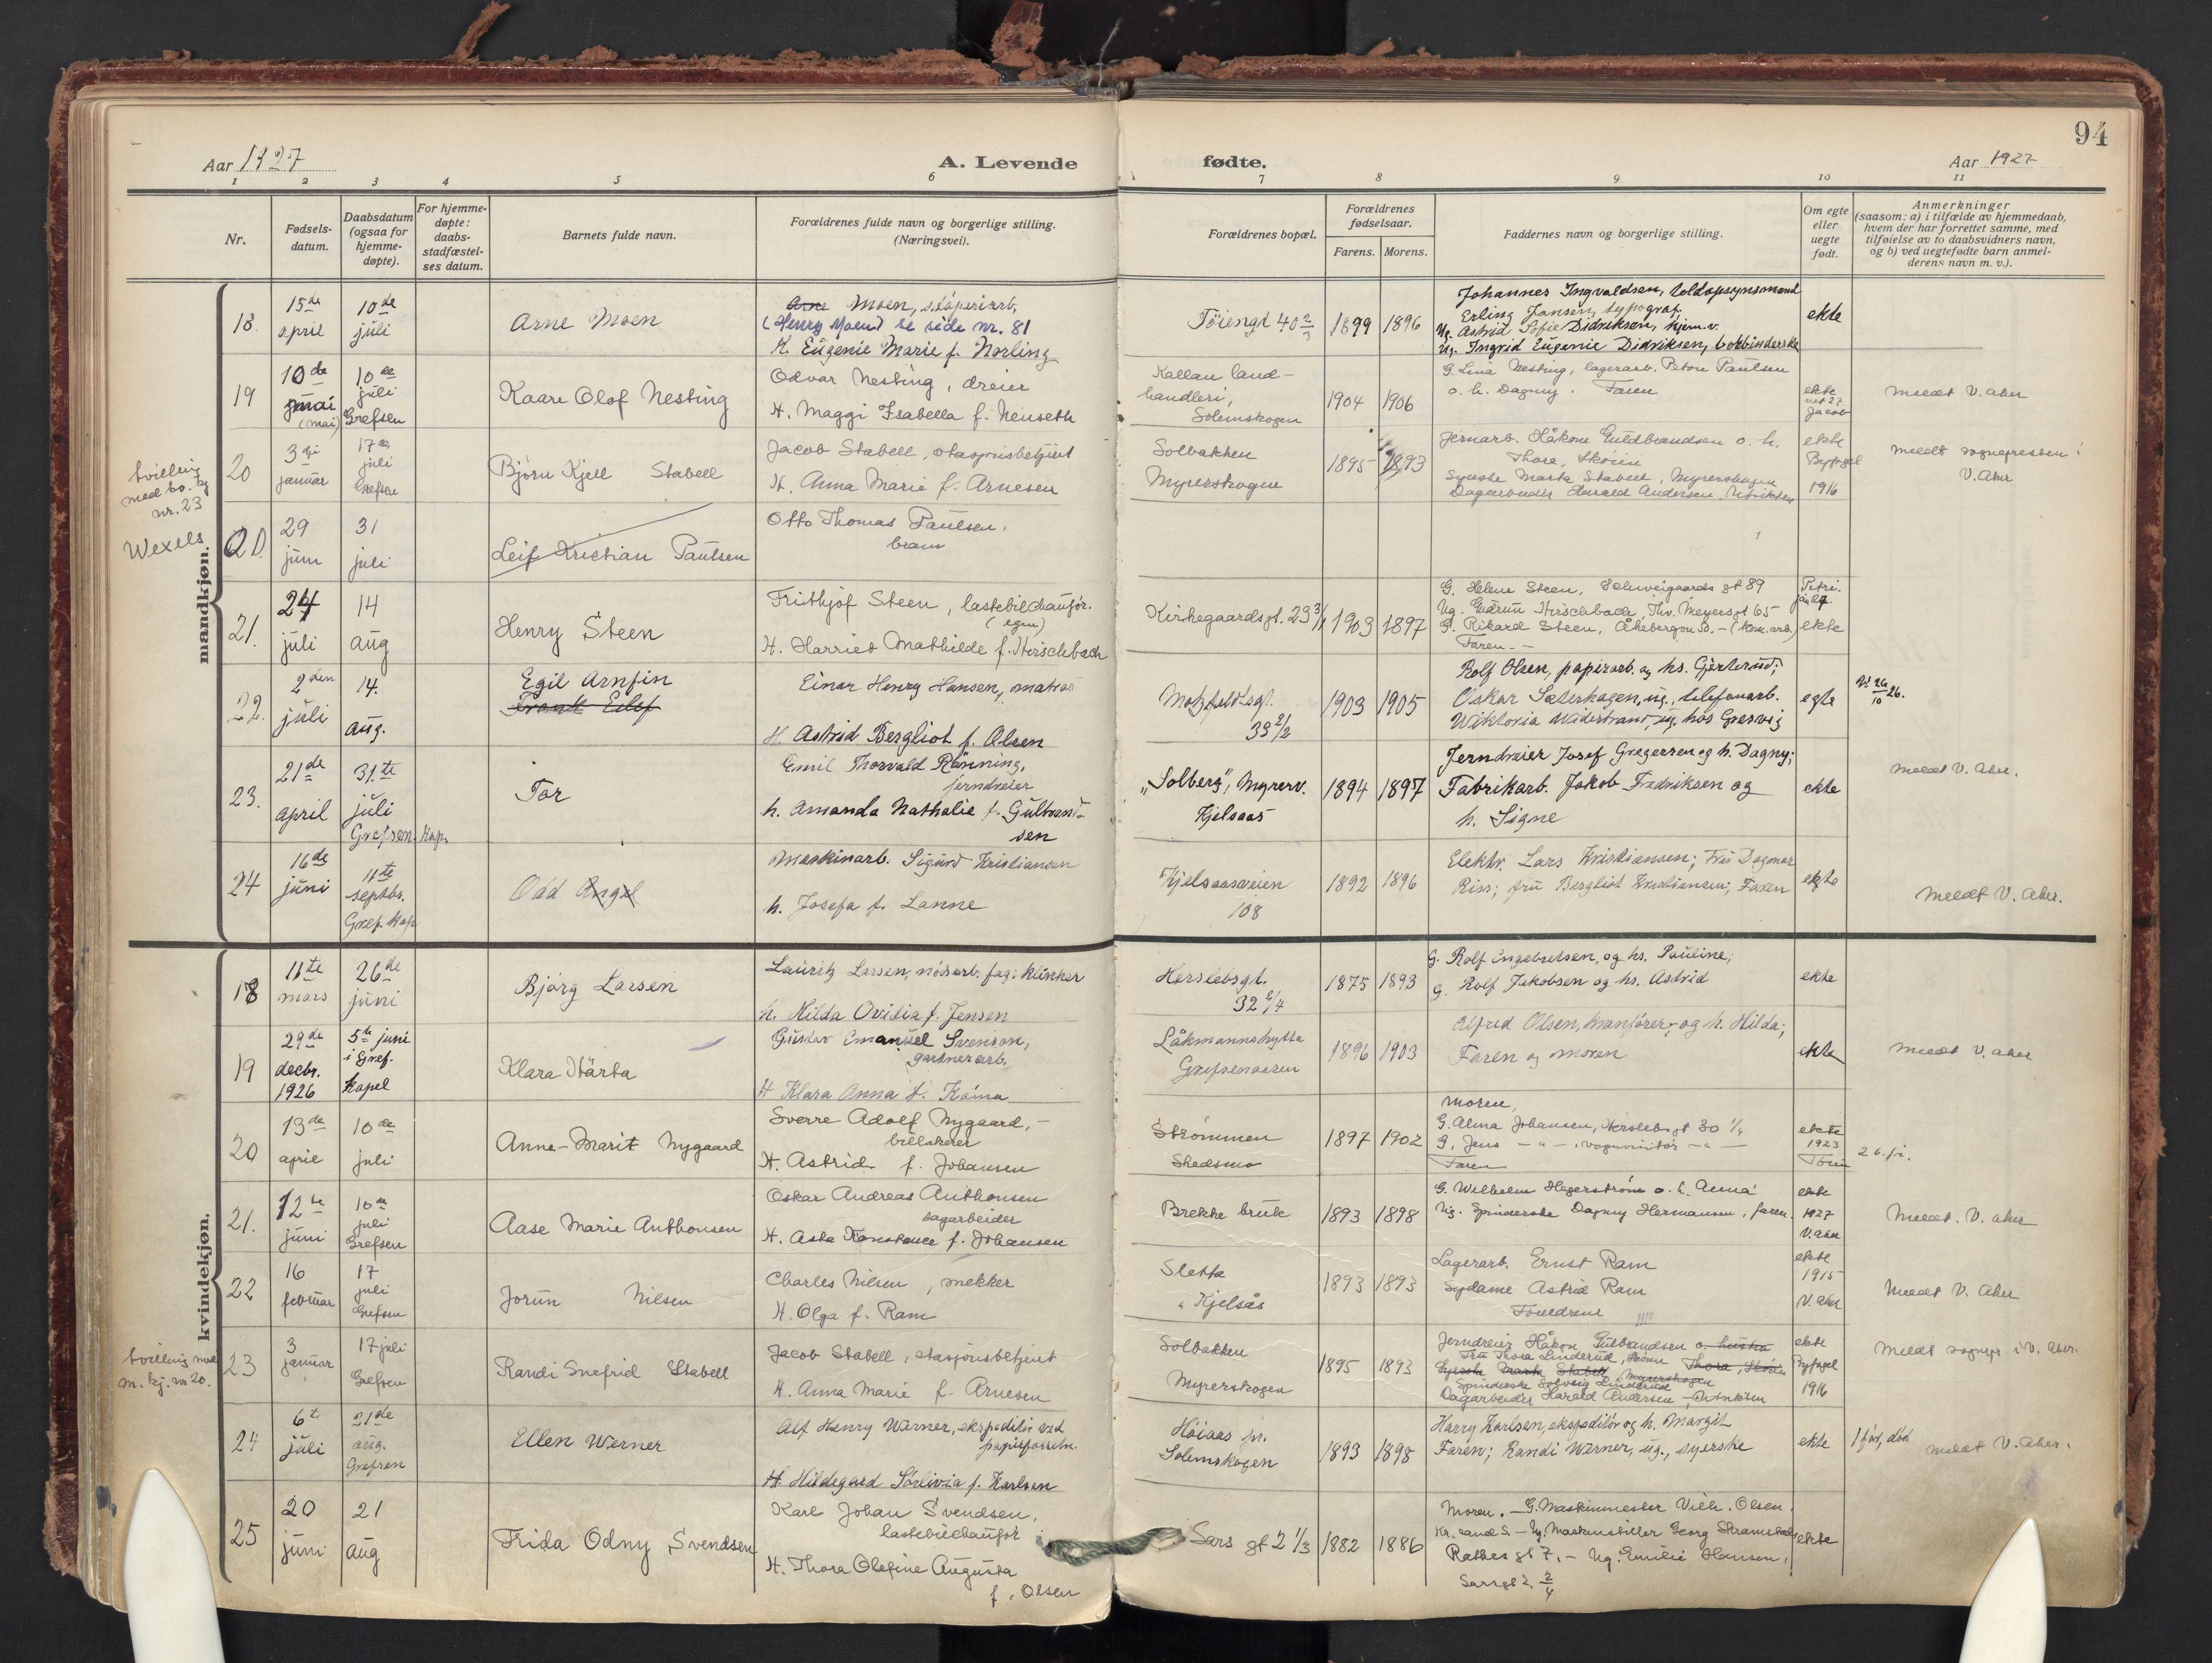 94
Aar 1927
A. Levende
fødte.
Aar 1927
1 2 3 4 5 6 7 8 9 10 11
Nr.
Fødsels-
datum.
Daabsdatum
(ogsaa for
hjemme-
døpte).
For hjemme-
døpte:
daabs-
stadfæstel-
ses datum.
Barnets fulde navn.
Forældrenes fulde navn og borgerlige stilling.
(Næringsvei).
Forældrenes bopæl.
Forældrenes
fødselsaar.
Farens. Morens.
Faddernes navn og borgerlige stilling.
Om egte
eller
uegte
født.
Anmerkninger
(saasom: a) i tilfælde av hjemmedaab,
hvem der har forrettet samme, med
tilføielse av to daabsvidners navn,
og b) ved uegtefødte barn anmel-
derens navn m. v.).
mandkjøn.
18.
15de
april
10de
juli
Arne Moen
Arne Moen, støperiarb.
(Henry Moen) se side nr. 81
H. Eugenie Marie f. Norling
Tøiengt 40 2/3
1899 1896
Johannes Ingvaldsen, toldopsynsmand
Erling Jansen, typograf
Ug. Astrid Sofie Didriksen, hjem.v.
Ug. Ingrid Eugenie Didriksen, bokbinderske
ekte
19
10de
mai
(mai)
10de
juli
Grefsen
Kaare Olof Nesting
Odvar Nesting, dreier
H. Maggi Isabella f. Neuseth
Kallan land-
handleri,
Solemskogen
1904 1906
G. Lina Nesting, lagerarb. Petor Paulsen
o. h. Dagny. Faren
ekte
Jacob
Meldt V. Aker
tvilling
med
nr. 23
20
3dje
januar
17de
juli
Grefsen
Bjørn Kjell Stabell
Jacob Stabell, stasjonsbetjent
H. Anna Marie f. Arnesen
Solbakken
Myrerskogen
1895 1893
Jernarb. Håkon Guldbrandsen o. h.
Thora, Skøien
Syerske Marta Stabell, Myrerskogen
Dagarbeider Harald Andersen,
ekte
1916
meldt sognepresten i
V. Aker
Wexels
20.
29
juni
31
juli
Leif Kristian Paulsen
Otto Thomas Paulsen,
21.
24
juli
14
aug
Henry Steen
Frithjof Steen, lastebilchaufør.
(egen)
H. Harriet Mathilde f. Hirschbach
Kirkegaardsgt. 23 3/1
1903 1897
G. Helene Steen, Schweigaards gt 89
Ug. Gudrun Hirschbach, Thv. Meyersgt 65
G. Rikard Steen, Åkebergvn 50. - (kom. arb.)
Faren. -
Petri.
ekte
22.
2den
juli
14.
aug.
Egil Arnfin
Frank Eilef
Einar Henry Hansen, matros
H. Astrid Bergliot f. Olsen
Motzfeldtsgt.
33 2/2
1903 1905
Rolf Olsen, papirarb. og hs. Gjertrud;
Oskar Sæterhagen, ug., telefonarb.
Wiktoria Widerstrand, ug. hos Gresvig
egte
V. 26/10 26.
23.
21de
april
31te
juli
Grefsen kap.
Tor
Emil Thorvald Rønning,
jerndreier
h. Amanda Nathalie f. Gulbrand-
sen
"Solberg", Myrerv.
Kjelsaas
1894 1897
Jerndreier Josef Gregersen og h. Dagny;
Fabrikarb. Jakob Fredriksen og
h. Signe
ekte
Meldt V. Aker.
24
16de
juni
11te
septbr.
Gref. kap.
Odd Angel
Maskinarb. Sigurd Kristiansen
h. Josefa f. Lanne
Kjelsaasveien
108
1892 1896
Elektr. Lars Kristiansen; Frk Dagmar
Riss; fru Bergliot Kristiansen; Faren
egte
Meldt V. Aker.
kvindekjøn.
18
11te
mars
26de
juni
Bjørg Larsen
Lauritz Larsen, nødsarb. fag: klinker
h. Hilda Ovidia f. Jensen
Herslebsgt.
32 2/4
1875 1893
G. Rolf Engebretsen, og hs. Pauline;
G. Rolf Jakobsen og hs. Astrid
ekte
19
29de
decbr.
1926
5te juni
i Gref.
kapel
Klara Märta
Gustav Emanuel Svenson,
gartnerarb.
H Klara Anna f.
Låkmannshytta
Grefsenaasen
1896 1903
Alfred Olsen, kranfører, og h. Hilda;
Faren og moren
ekte
Meldt V. Aker
20
13de
april
10de
juli
Anne-Marit Nygaard
Sverre Adolf Nygaard, -
billakerer
H. Astrid f. Johansen
Strømmen
Skedsmo
1897 1902
Moren,
G. Alma Johansen, Herslebsgt 30 1/4
G. Jens - " - , vognvisitør - " -
Faren
ekte
1923
21.
12te
juni
10de
juli
Grefsen
Aase Marie Anthonsen
Oskar Andreas Anthonsen
sagarbeider
H. Asta Konstance f. Johansen
Brekke bruk
1893 1898
G. Wilhelm Hegerstrøm o. h. Anna
Ug. Spinderske Dagny Hermansen, faren.
ekte
1927
V. Aker
Meldt. V. Aker
22
16
februar
17
juli
Grefsen
Jorun Nilsen
Charles Nilsen, mekker
H. Olga f. Ram
Sletta
" Kjelsås
1893 1893
Lagerarb. Ernst Ram
Sydame Astrid Ram
Foreldrene
ekte
1915
V. Aker
Meldt V. Aker
tvilling med
m. kj. nr 20.
23
3
januar
17 juli
Grefsen
Randi Snefrid Stabell
Jacob Stabell, stasjonsbetjent
H. Anna Marie f. Arnesen
Solbakken
Myrerskogen
1895 1893
Jerndreier Håkon Gulbrandsen o. hustru
Fru Thora Linderud, Thora, Skøien
Syerske Marta Stabell, Myrerskogen
Spinderske Solveig Linderud
Dagarbeider Harald Andersen,
ekte
1916
Meldt sognepr. i V. Aker.
24
6te
juli
21de
aug.
Grefsen
Ellen Werner
Alf Henry Werner, ekspeditør ved
papirforretn.
H Hildegard Sørlivia f. Karlsen
Høiaas pr.
Solemskogen
1893 1898
Harry Karlsen, ekspeditør og h. Margit
Faren; Randi Werner, ug., syerske
ekte
1 før, død
Meldt V. Aker.
25
20
juni
21
aug
Frida Odny Svendsen
Karl Johan Svendsen,
lastebilchaufør
H. Thora Olefine Augusta
f. Olsen
Sars gt 2 1/3
1882 1886
Moren. - G. Maskinmester Vilh. Olsen,
Kr. sand S. - Ug. Maskinstiller Georg Skramstad
Rathes gt 7. - Ug. Emilie Hansen,
Sarsgt 2. 2/4
ekte